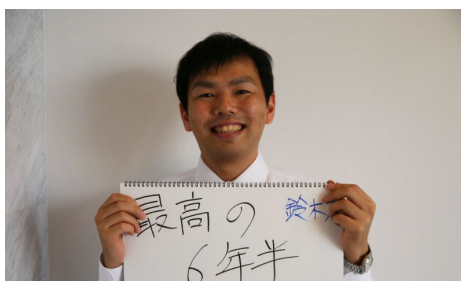 最高の 鈴木
6年半